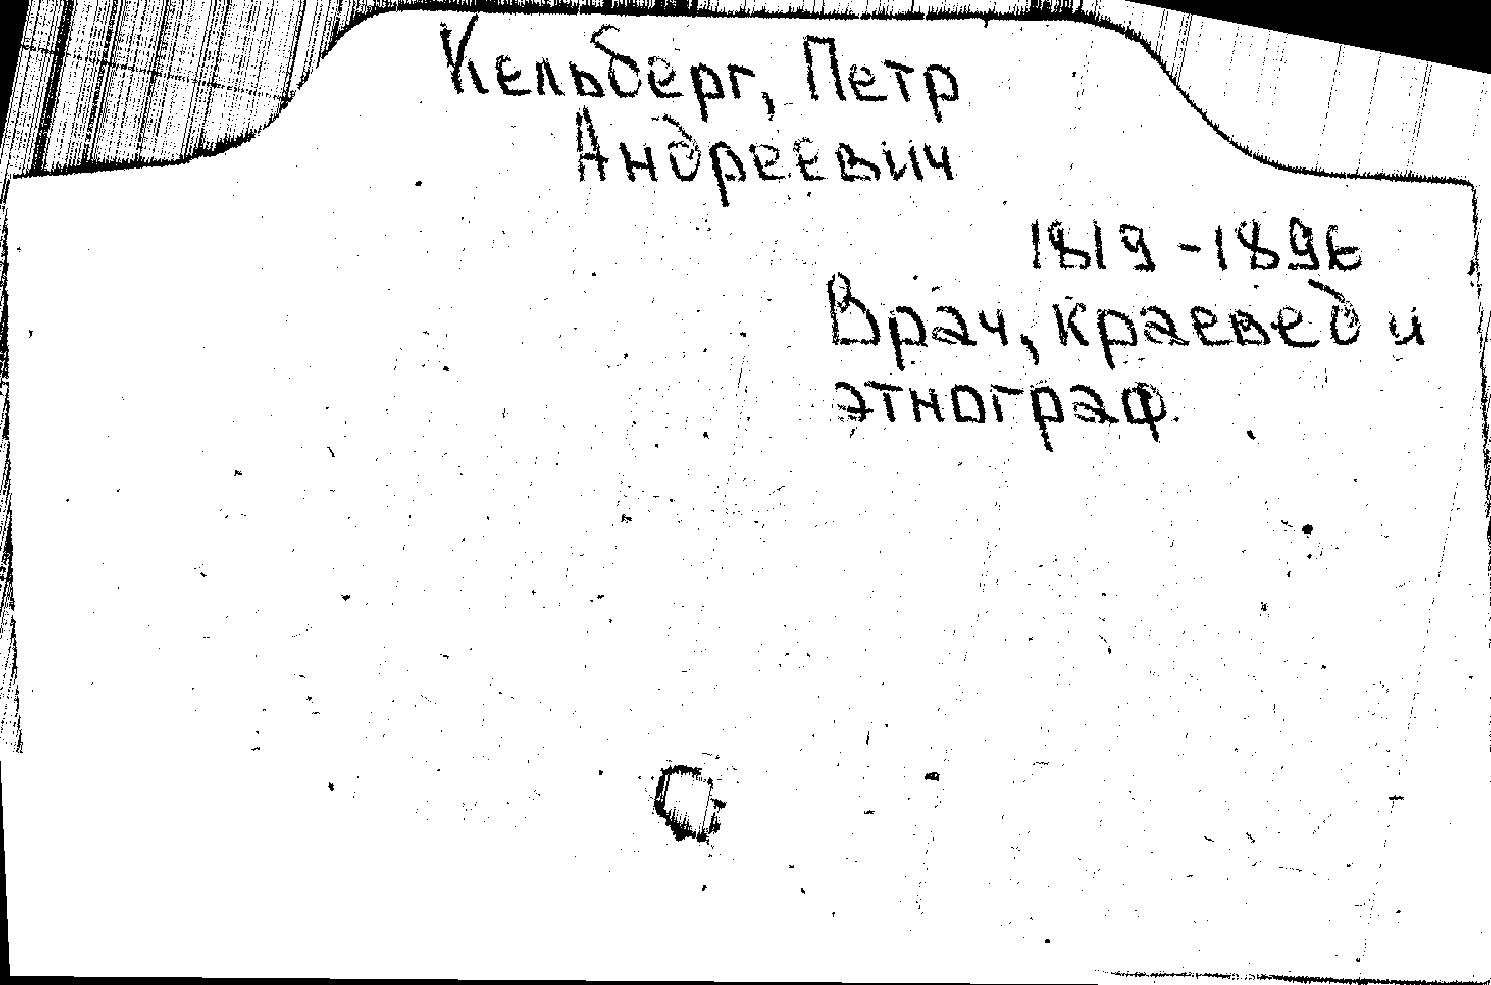 Кельберг, Петр
Андреевич
1819-1896
Врач, краевед и
этнограф.